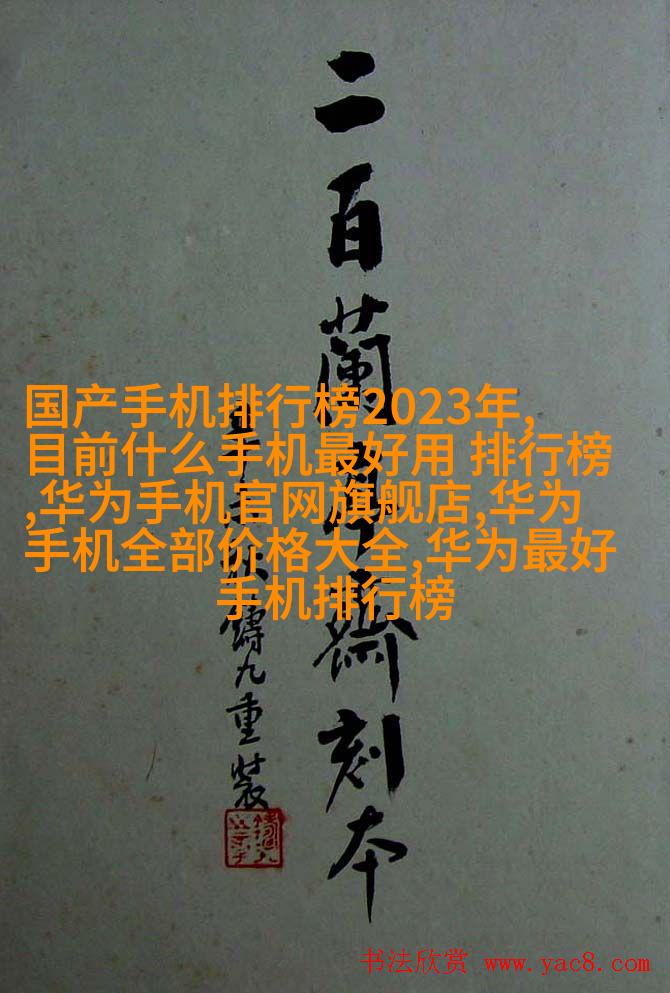 二百蘭亭齋刻本
鑄九重裝
国产手机排行榜2023年,
目前什么手机最好用 排行榜
,华为手机官网旗舰店,华为
手机全部价格大全,华为最好
手机排行榜
书法欣赏 www.yac8.com